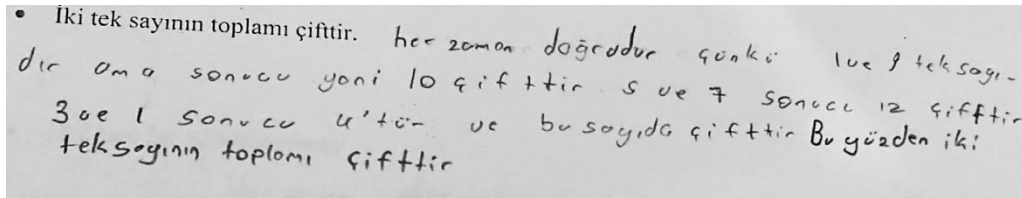 • İki tek sayının toplamı çifttir. her zaman doğrudur çünkü 1 ve 9 tek sayı-
dır ama sonucu yani 10 çifttir 5 ve 7 sonucu 12 çifttir
3 ve 1 sonucu 4'tür ve bu sayıda çifttir Bu yüzden iki
tek sayının toplamı çifttir